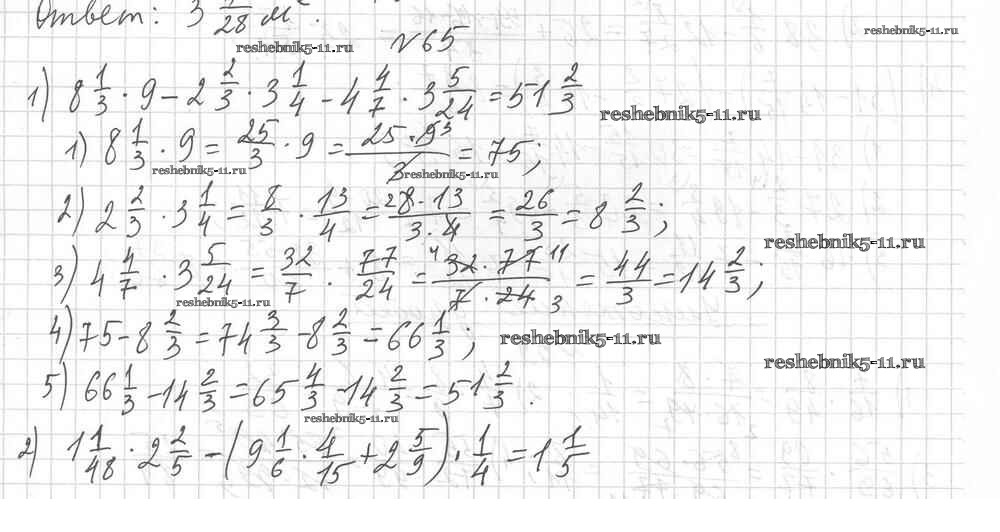 Ответ: 3 1/28 м².
№65
reshebnik5-11.ru
reshebnik5-11.ru
1) 8 1/3 · 9 − 2 2/3 · 3 1/4 − 4 4/7 · 3 5/24 = 51 2/3
reshebnik5-11.ru
1) 8 1/3 · 9 = 25/3 · 9 = 25 · 9 3/3 = 75;
reshebnik5-11.ru
reshebnik5-11.ru
2) 2 2/3 · 3 1/4 = 8/3 · 13/4 = 2 8 · 13/3 · 4 = 26/3 = 8 2/3;
reshebnik5-11.ru
3) 4 4/7 · 3 5/24 = 32/7 · 77/24 = 4 32 · 77 11/7 · 24 3 = 44/3 = 14 2/3;
reshebnik5-11.ru
4) 75 − 8 2/3 = 74 3/3 − 8 2/3 = 66 1/3;
reshebnik5-11.ru
reshebnik5-11.ru
5) 66 1/3 − 14 2/3 = 65 4/3 − 14 2/3 = 51 2/3.
reshebnik5-11.ru
2) 1 1/48 · 2 2/5 − (9 1/6 · 4/15 + 2 5/9) · 1/4 = 1 1/5